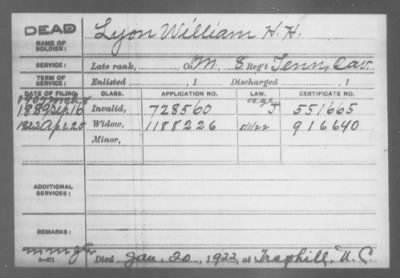 DEAD
NAME OF SOLDIER: Lyon William H. H.
SERVICE: Late rank, Co. M, 8 Reg't Tenn. Cav.
TERM OF SERVICE: Enlisted , 1 Discharged , 1
DATE OF FILING. CLASS. APPLICATION NO. LAW. CERTIFICATE NO.
1889 Sep 16 Invalid, 728560 551665
1922 Apr. 25 Widow, 1188226 5/1/22 916640
Minor,
ADDITIONAL SERVICES:
REMARKS:
Died Jan. 20, 1922, at Traphill, N.C.